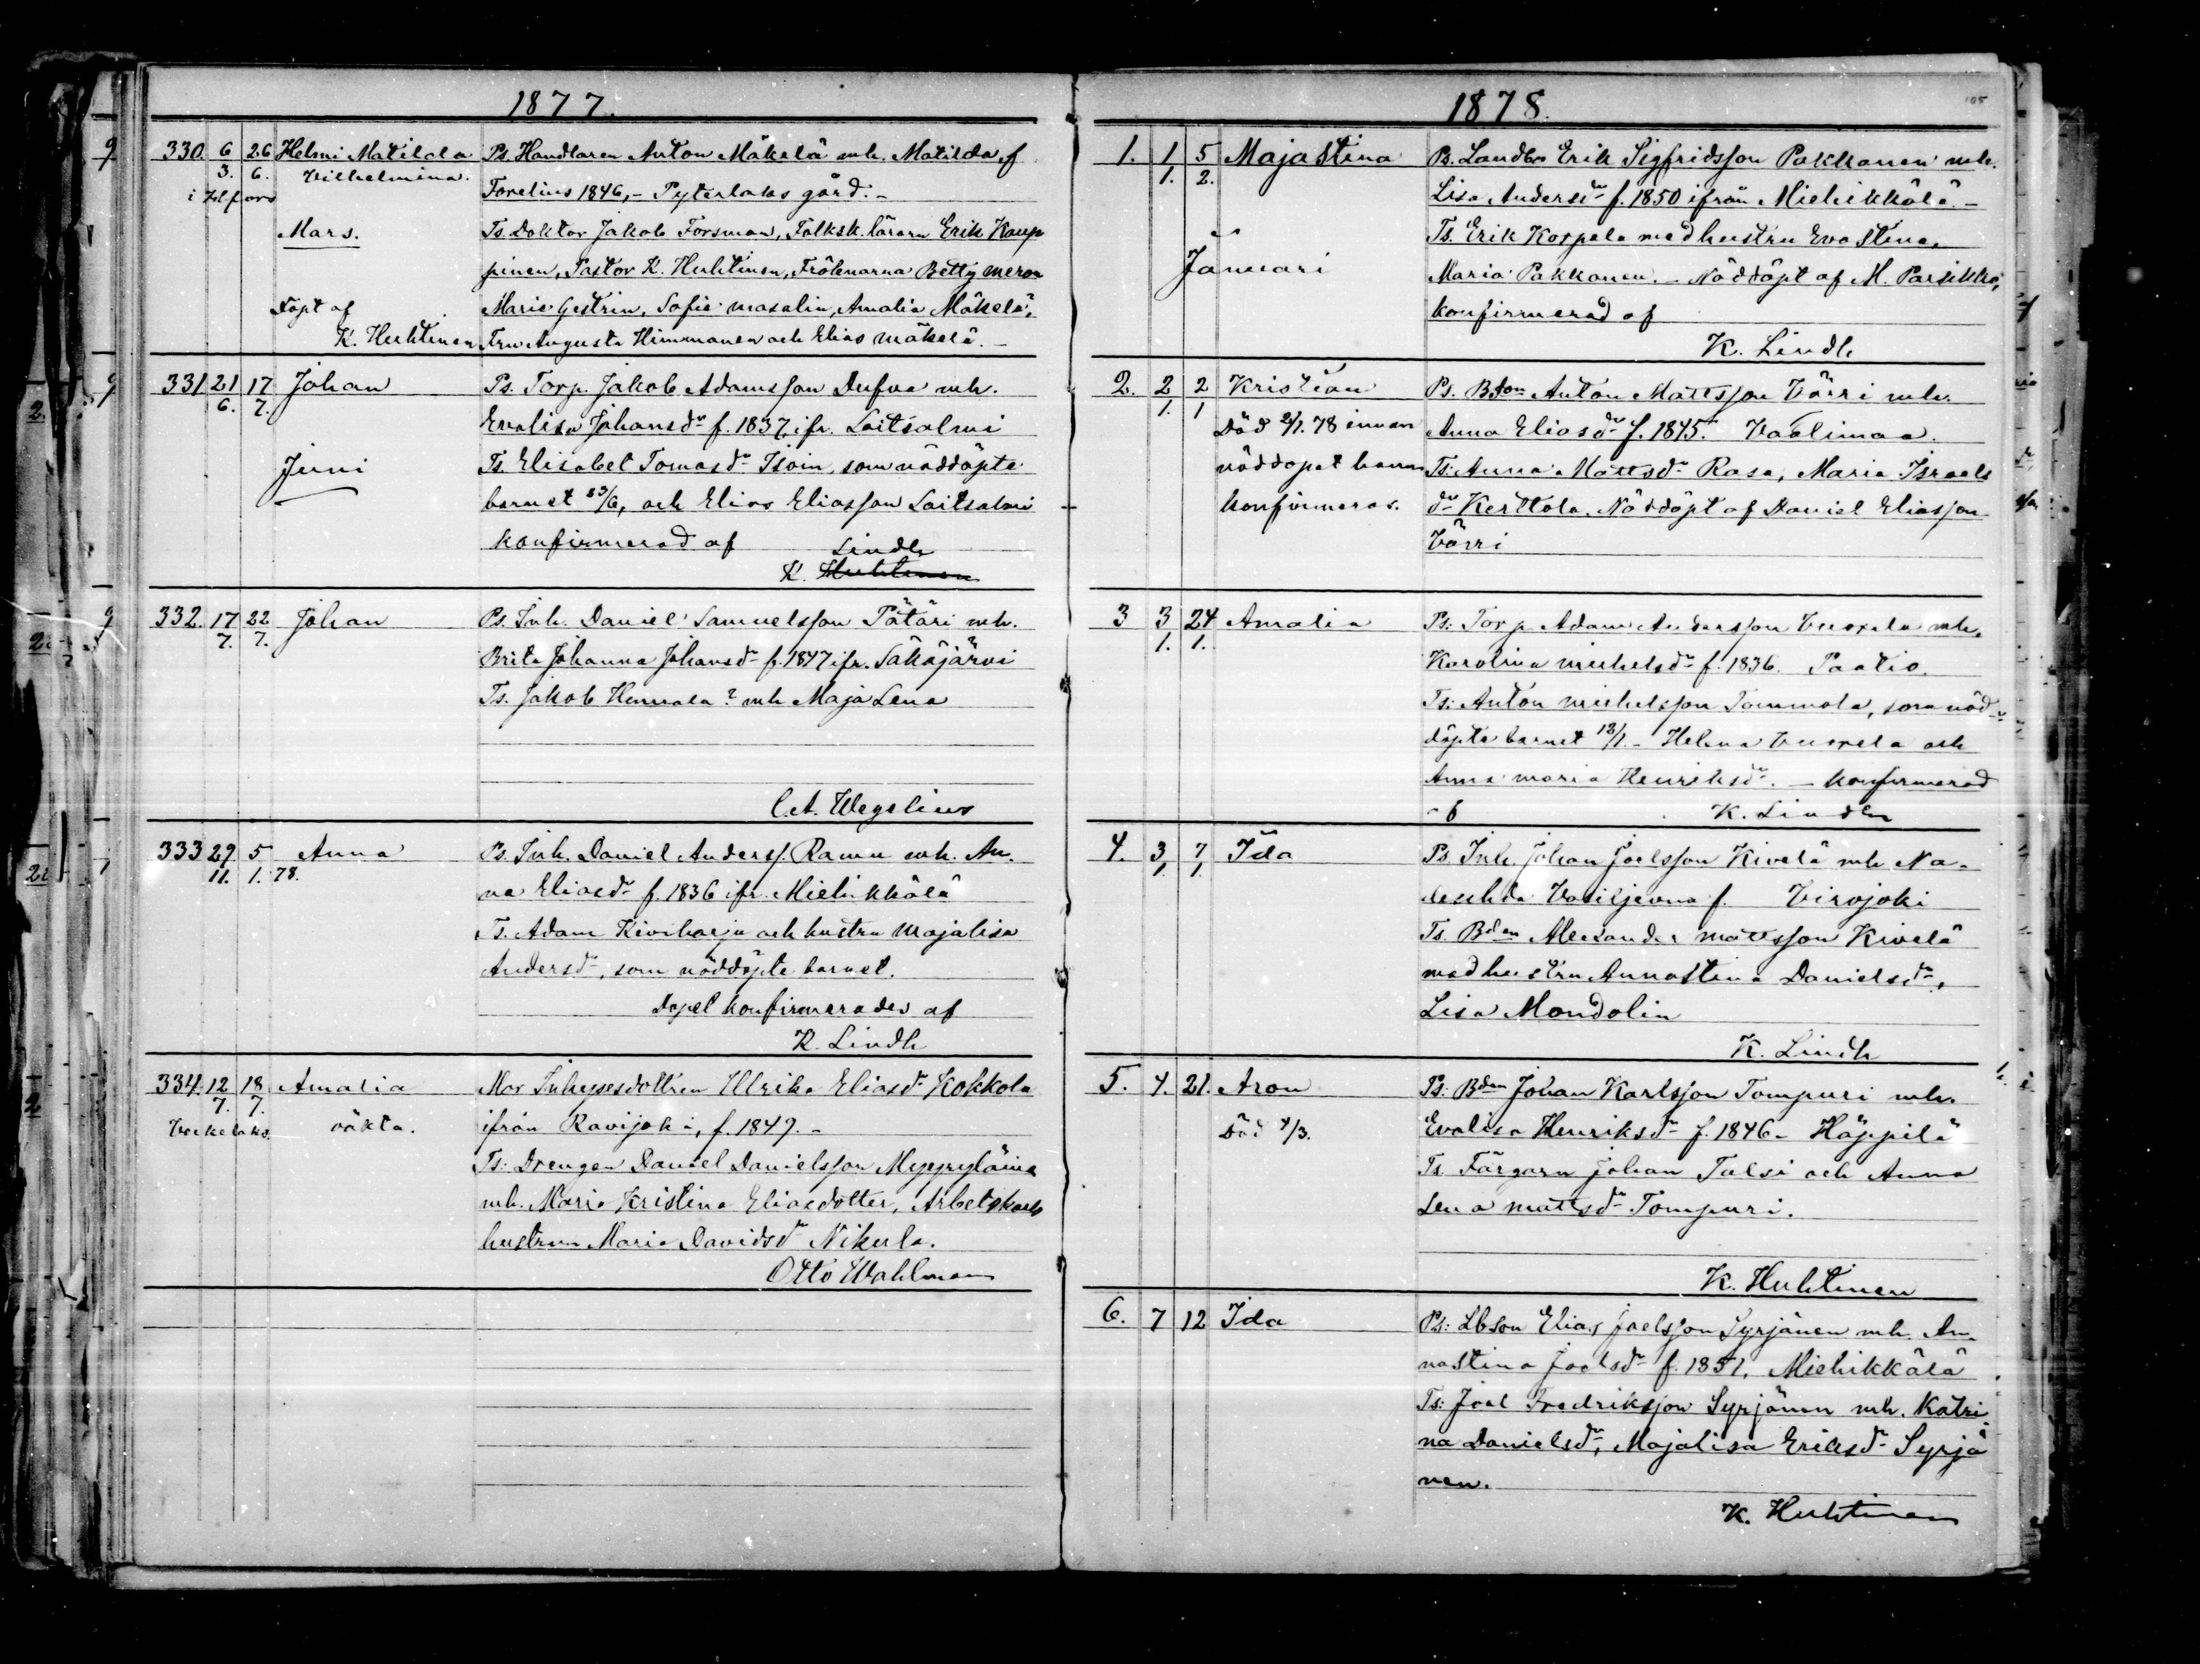 1877.
330. 6 26 Helmi Matilda Ps. Handlaren Anton Mäkelä mh. Matilda f.
3. 6. Vilhelmina. Forelius 1846, - Pyterlaks gård. -
i Hlfors
Mars. Ts. Doktor Jakob Forsman, Folksk. läraren Erik Kaup
pinen, Pastor K. Huhtinen, Fröknarna Betty
Döpt af Marie Gestrin, Sofie Masalin, Amalia Mäkelä,
K. Huhtinen Fru Augusta Himmanen och Elias Mäkelä. -
331 21 17 Johan Ps. Torp. Jakob Adamsson Dufva mh.
6. 7. Evalisa Johansdr f. 1837, ifr. Laitsalmi
Juni Ts. Elisabet Tomasdr Isoin, som nöddöpte
barnet 23/6, och Elias Eliasson Laitsalmi
konfirmerad af Lindh
K. Huhtinen
332. 17 22 Johan Ps. Inh. Daniel Samuelsson Pätäri mh.
7. 7. Brita Johanna Johansdr f. 1847 ifr. Säkäjärvi
Ts. Jakob ? mh Maja Lena
C.A. Wegelius
333 29 5 Anna Ps. Inh. Daniel Anderss. Ramu mh. An-
11. 1. 78. na Eliasdr f. 1836 ifr. Miehikkälä
Ts. Adam Kiviharju och hustru Majalisa
Andersdr, som nöddöpte barnet.
Dopet konfirmerades af
K. Lindh
334. 12 18 Amalia Mor Inhysesdottren Ulrika Eliasdr Kokkola
7. 7. oäkta. ifrån Ravijoki, f. 1849. -
Vekelaks.
Ts: Drengen Daniel Danielsson Myyryläinen
mh. Maria Kristina Eliasdotter, Arbetskarls
hustrun Maria Davidsdr Nikula.
Otto Wahlman
1878. 105
1. 1 5 Majastina Ps. Landbo Erik Sigfridsson Pakkanen mh.
1. 2. Lisa Andersdr f. 1850 ifrån Miehikkälä. -
Januari Ts. Erik Korpela med hustru Evastina,
Maria Pakkanen. - Nöddöpt af M. Parsikko,
konfirmerad af
K. Lindh
2. 2 2 Kristian Ps. Bdon Anton Mattsson Värri mh.
1. 1 Död 2/1. 78 innan Anna Eliasdr f. 1845. Vaalimaa.
nöddopet hann Ts: Anna Mattsdr Rasa, Maria Israels
konfirmeras. dr Kerttola. Nöddöpt af Daniel Eliasson
Värri
3 3 24 Amalia Ps: Torp Adam Andersson Vuorela mh.
1. 1. Karolina Michelsdr f. 1836. Paatio.
Ts: Anton Michelsson Tommola, som nöd-
döpte barnet 13/1. - Helena Vuorela och
Anna Maria Henriksdr. - Konfirmerad
af K. Lindh
4. 3 7 Ida Ps. Inh. Johan Joelsson Kivelä mh Na-
1. 1. deschda Vasiljevna f. Virojoki
Ts. Bden Alexander Mattsson Kivelä
med hustru Annastina Danielsdr,
Lisa Mondolin
K. Lindh
5. 4. 21. Aron Ps: Bden Johan Karlsson Tompuri mh.
Död 4/3. Evalisa Henriksdr f. 1846 - Häppilä
Ts. Färgaren Johan Talsi och Anna
Lena Mattsdr Tompuri.
K. Huhtinen
6. 7 12 Ida Ps: Lbson Elias Joelsson Syrjänen mh. An-
nastina Joelsdr f. 1851. Miehikkälä
Ts: Joel Fredriksson Syrjänen mh. Katri
na Danielsdr, Majalisa Eriksdr Syrjä
nen.
K. Huhtinen